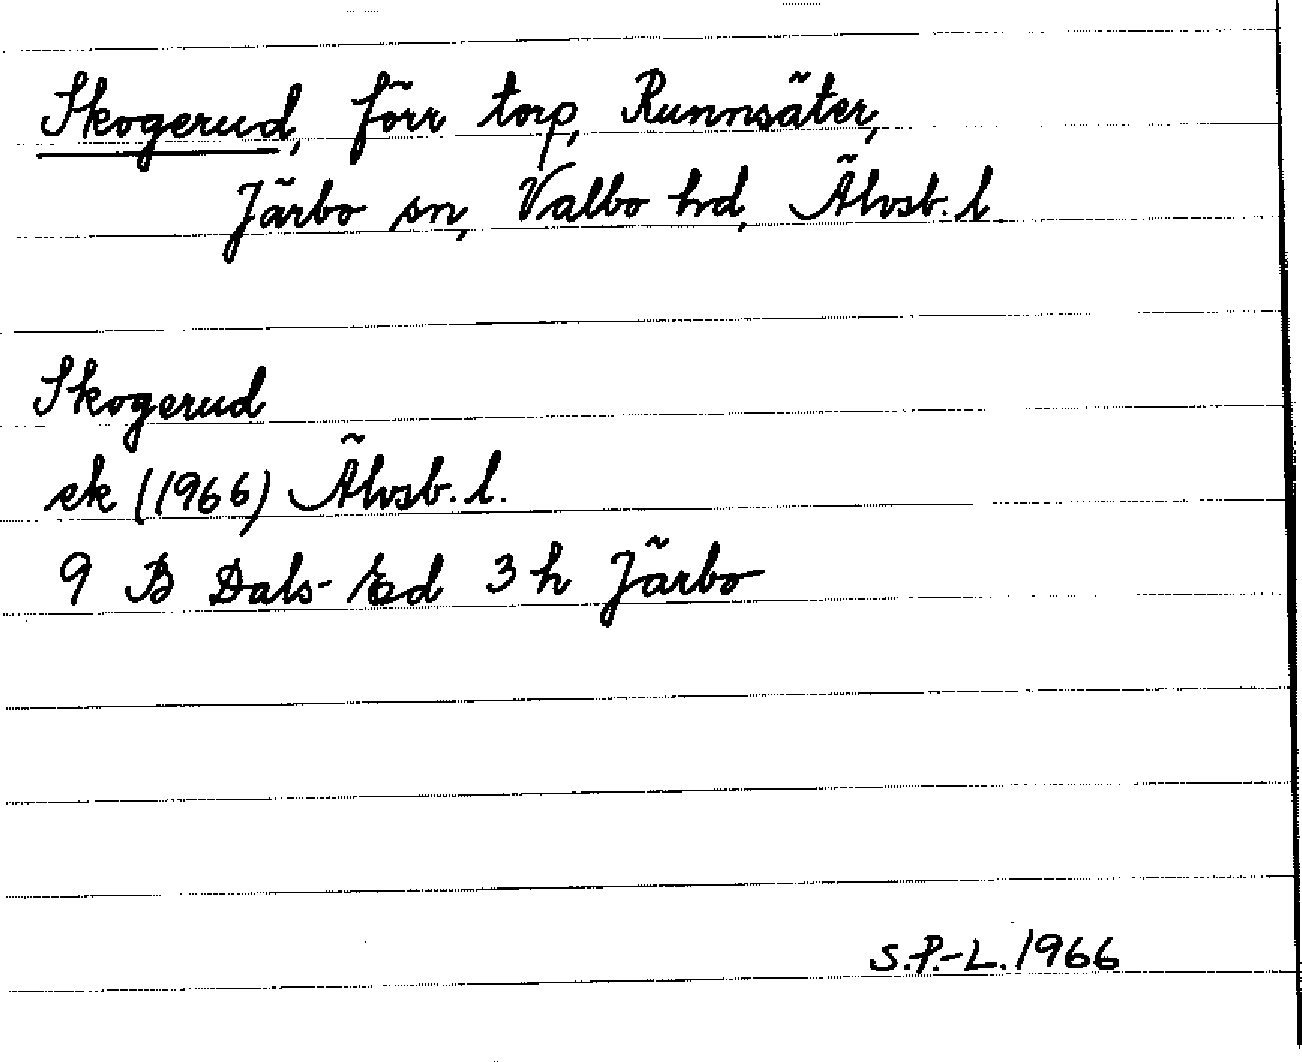 Skogerud, förr torp, Runnsäter,
Järbo sn, Valbo hd, Älvsb. l
Skogerud
ek (1966) Älvsb. l.
9 B Dals-Ed 3 h Järbo
S.P.-L. 1966